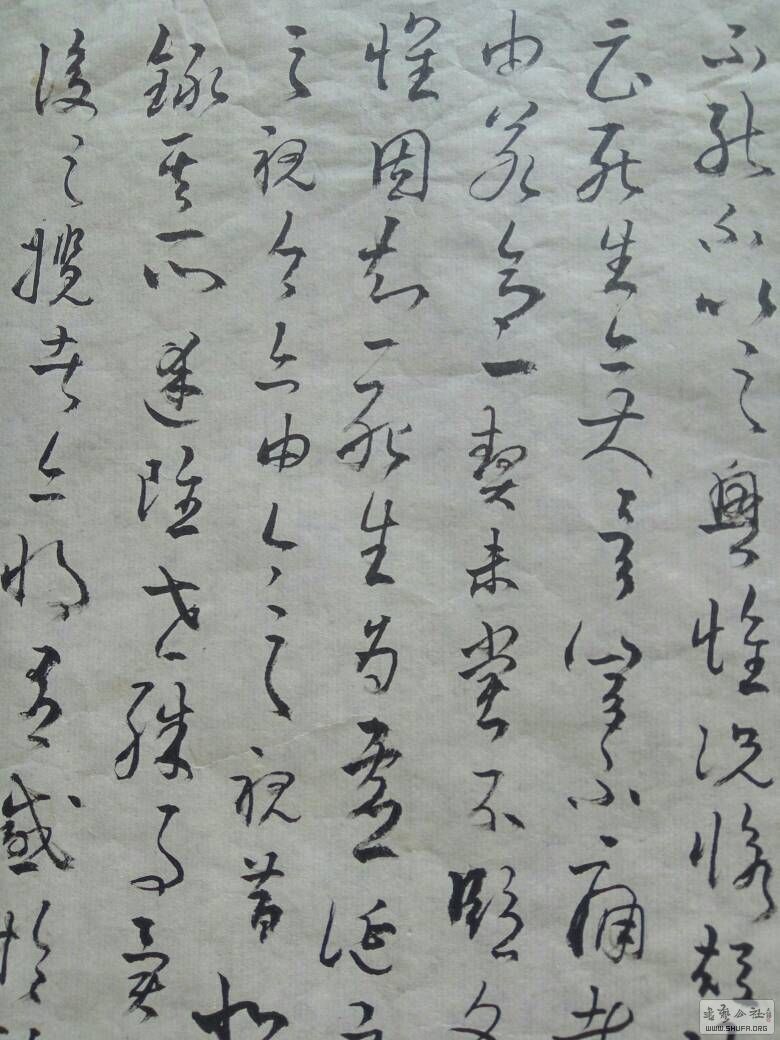 不能不以之興懷況脩短
云死生亦大矣豈不痛哉
由若合一契未嘗不臨文
懷固知一死生為虛誕
之視今亦由今之視昔
錄其所述雖世殊事異
後之攬者亦將有感於
書藝公社
WWW.SHUFA.ORG